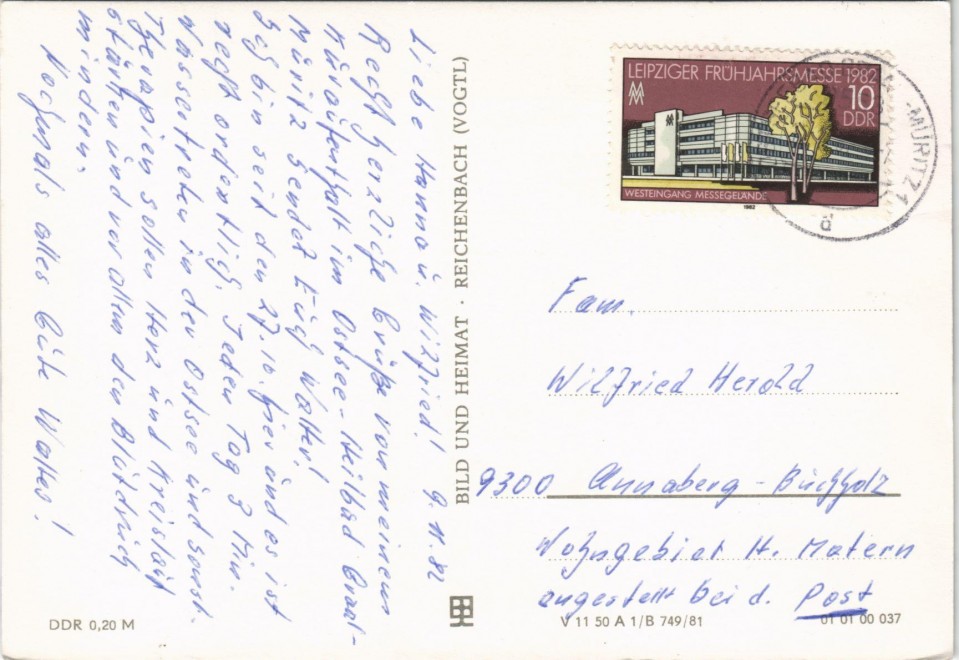 Liebe Hanna u. Wilfried! 9.11.82
Recht herzliche Grüße von meinem
Kuraufenthalt im Ostsee-Heilbad Graal-
Müritz sendet Euch Walter!
Ich bin seit den 27.10. hier und es ist
recht ordentlich. Jeden Tag 3 Min.
Wassertreten in der Ostsee und sonst.
Therapien sollen Herz und Kreislauf
stärken und vor allem den Blutdruck
mindern.
Nochmals alles Gute Walter!
BILD UND HEIMAT · REICHENBACH (VOGTL)
LEIPZIGER FRÜHJAHRSMESSE 1982
10
DDR
WESTEINGANG MESSEGELÄNDE
1982
-MÜRITZ 1
a
Fam.
Wilfried Herold
9300 Annaberg-Buchholz
Wohngebiet H. Matern
angestellt bei d. Post
DDR 0,20 M
V 11 50 A 1/B 749/81
01 01 00 037